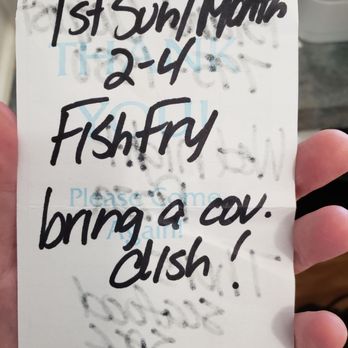 1st Sun/Month
THANK
2-4
YOU!
Fish Fry
Please Come
bring a cov.
Again!
dish!